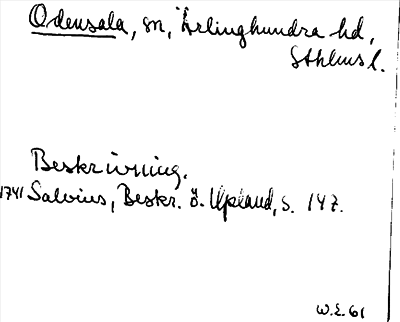 Odensala, sn, Ärlinghundra hd,
Sthlms l.
Beskrivning.
1741 Salvius, Beskr. ö. Upland, s. 147.
W.E. 61